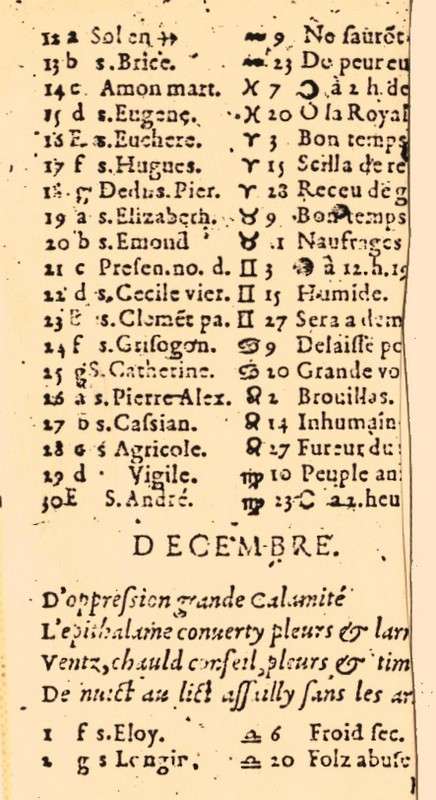 12 a Sol en ♐ ♒ 9 No saurõt
13 b s.Brice. ♒ 23 De peur eu
14 c Amon mart. ♓ 7 ☽ à 2 h. de
15 d s.Eugene. ♓ 20 O la Royal
16 E s.Euchere. ♈ 3 Bon temps
17 f s.Hugues. ♈ 15 Scilla de re
18 g Dedus.Pier. ♈ 28 Receu de g
19 a s.Elizabeth. ♉ 9 Bon temps
20 b s.Emond ♉ Naufrages
21 c Presen.no. d. ♊ 3 à 12.h.19
22 d s.Cecile vier. ♊ 15 Humide.
23 E s.Clemẽt pa. ♊ 27 Sera a dem
24 f s.Grisogon. ♋ 9 Delaissé pc
25 g S.Catherine. ♋ 20 Grande vo
26 a s.Pierre Alex. ♌ 2 Brouillas.
27 b s.Cassian. ♌ 14 Inhumain
28 c s Agricole. ♌ 27 Fureur du
29 d Vigile. ♍ 10 Peuple ani
30 E S.André. ♍ 23 ☾ a 2.heu
DECEMBRE.
D'oppression grande Calamité
L'epithalame conuerty pleurs & larr
Ventz, chauld conseil, pleurs & tim
De nuict au lict assailly sans les ar
1 f s.Eloy. ♎ 6 Froid sec.
2 g s Longir. ♎ 20 Folz abuse